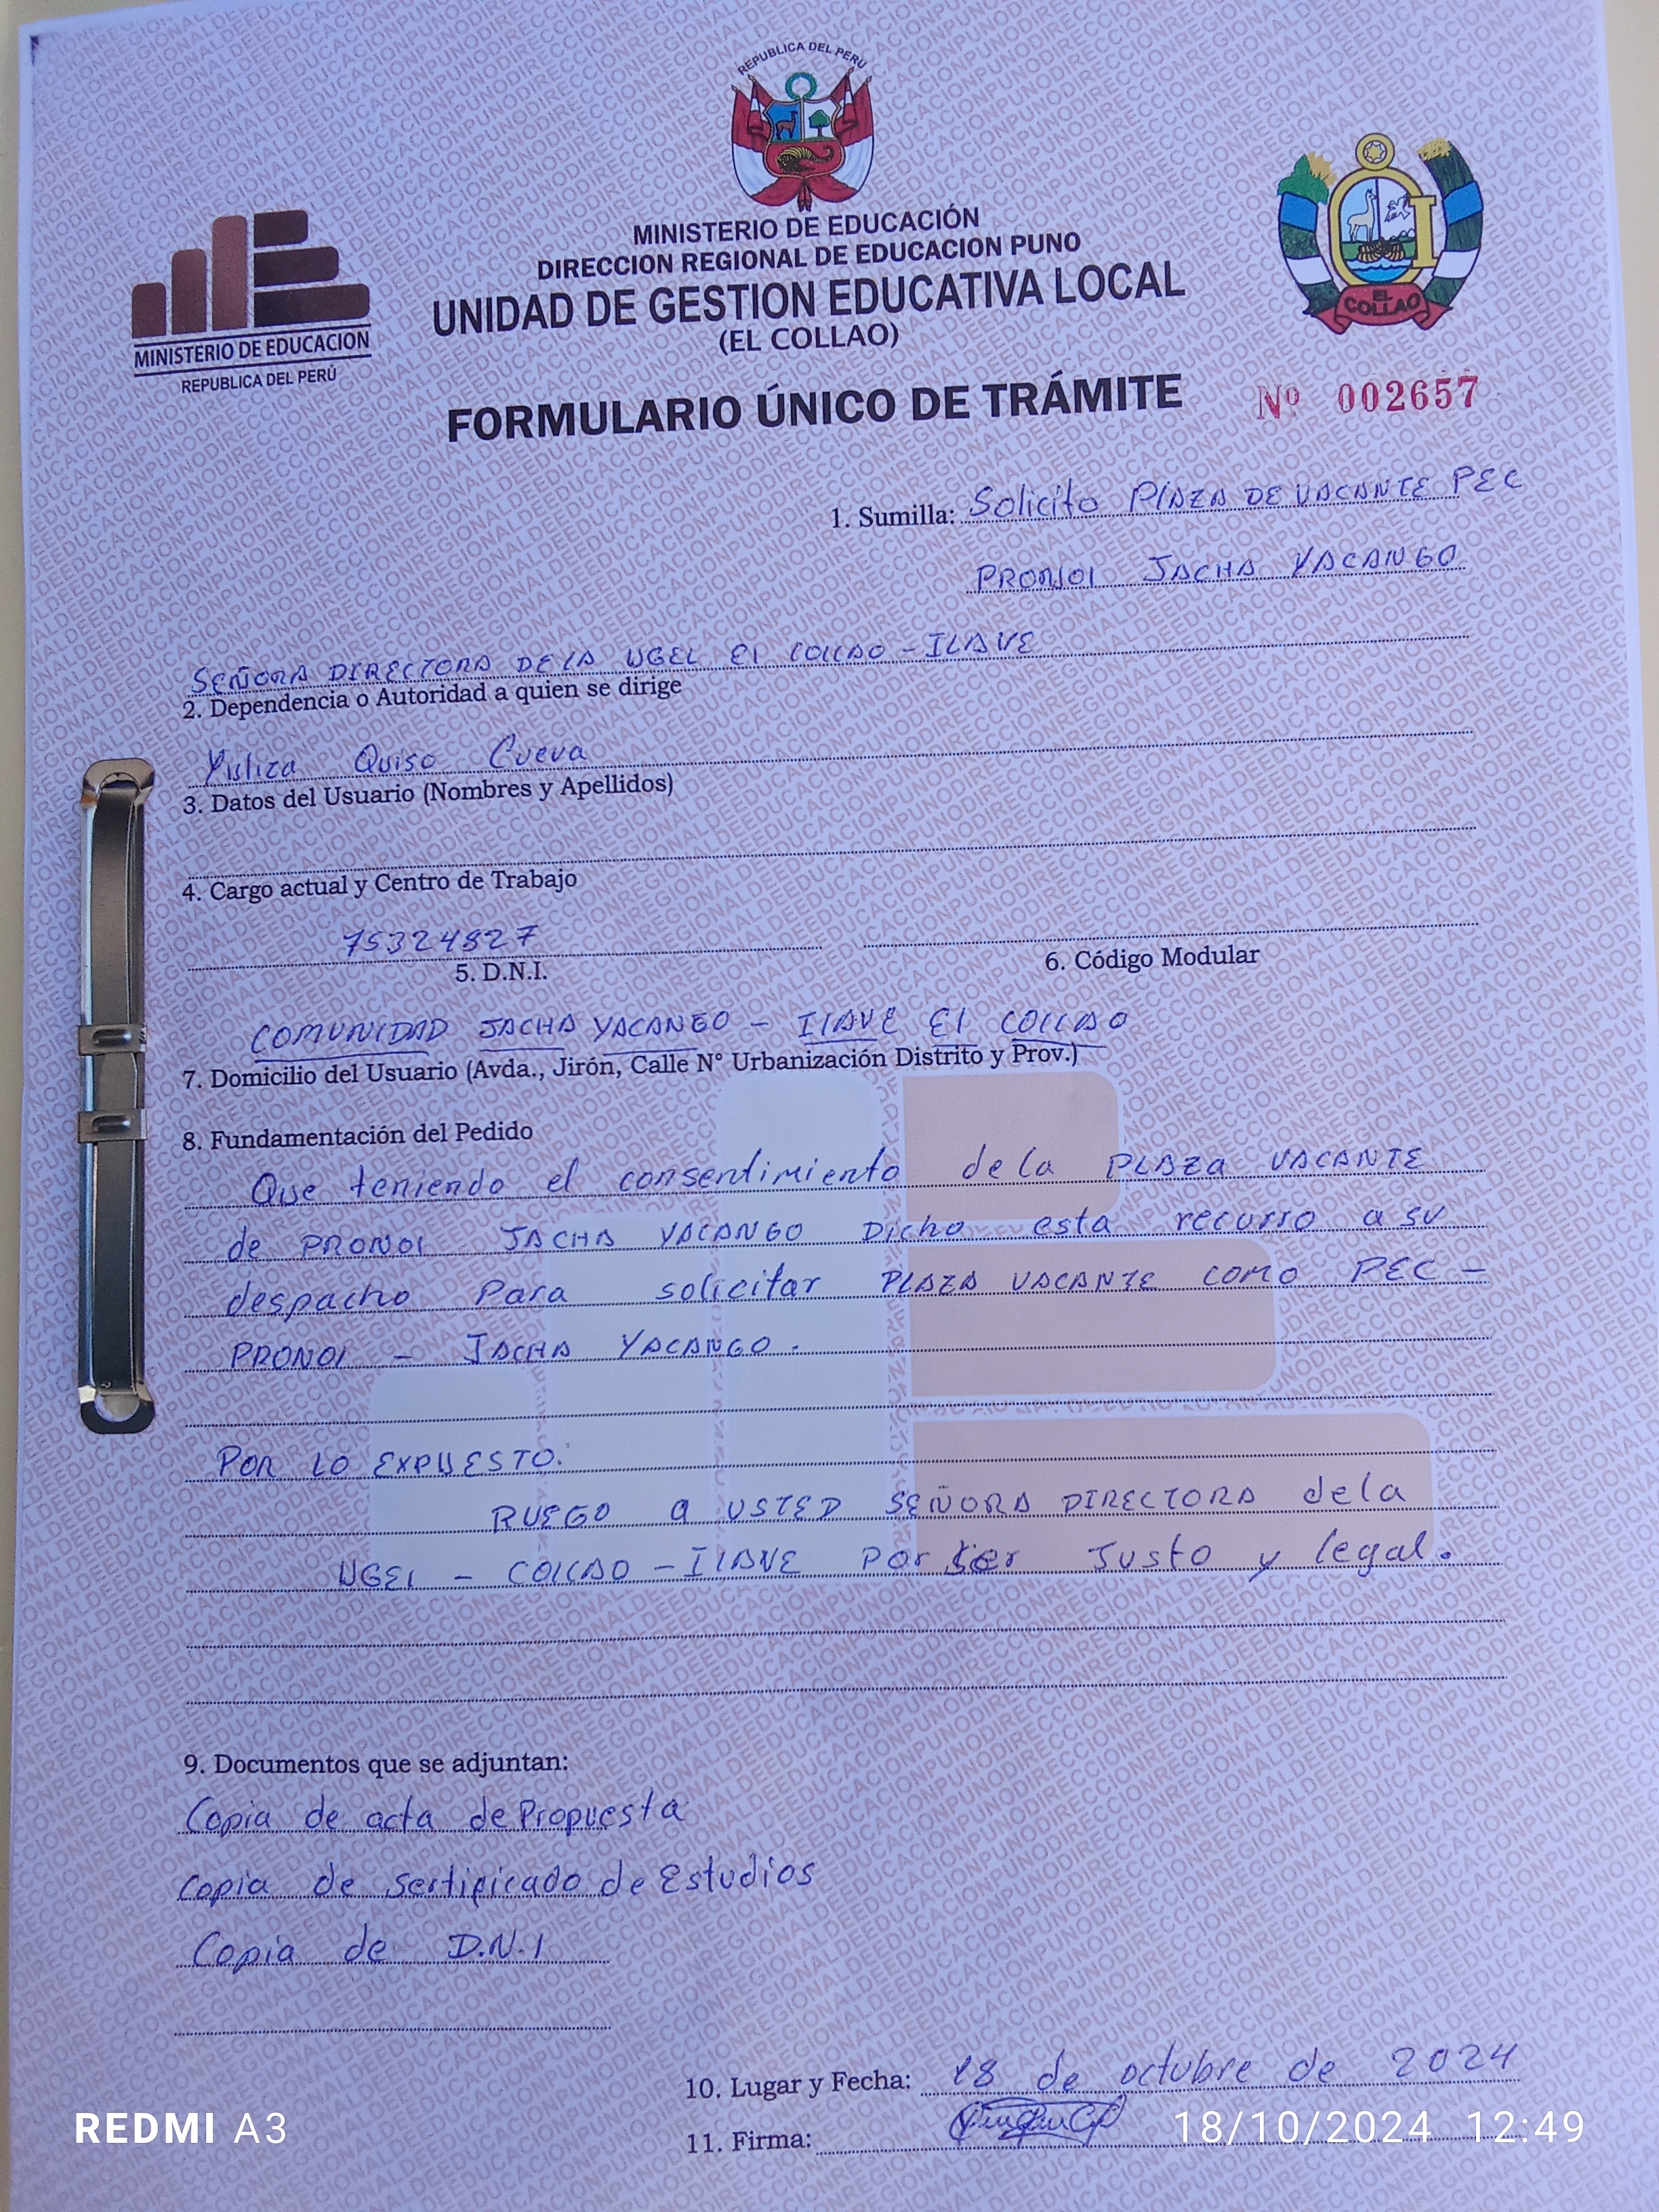 REPUBLICA DEL PERU
MINISTERIO DE EDUCACIÓN
DIRECCION REGIONAL DE EDUCACION PUNO
UNIDAD DE GESTION EDUCATIVA LOCAL
(EL COLLAO)
MINISTERIO DE EDUCACION
REPUBLICA DEL PERÚ
EL COLLAO
FORMULARIO ÚNICO DE TRÁMITE
Nº 002657
1. Sumilla: Solicito PlAZA DE VACANTE PEC
PRONOI JACHA YACANGO
SEÑORA DIRECTORA DE LA UGEL El COllAO - IlAVE
2. Dependencia o Autoridad a quien se dirige
Yuliza Quiso Cueva
3. Datos del Usuario (Nombres y Apellidos)
4. Cargo actual y Centro de Trabajo
75324827
5. D.N.I.
6. Código Modular
COMUNIDAD JACHA YACANGO - IlAVE El COllAO
7. Domicilio del Usuario (Avda., Jirón, Calle N° Urbanización Distrito y Prov.)
8. Fundamentación del Pedido
Que teniendo el consentimiento de la PLAZA VACANTE
de PRONOI JACHA YACANGO Dicho esta recurro a su
despacho Para solicitar PLAZA VACANTE COMO PEC -
PRONOI - JACHA YACANGO.
POR LO EXPUESTO:
RUEGO a USTED SEÑORA DIRECTORA de la
UGEl - COllAO - IlAVE Por ser Justo y legal.
9. Documentos que se adjuntan:
Copia de acta de Propuesta
Copia de sertificado de Estudios
Copia de D.N.I
10. Lugar y Fecha: 18 de octubre de 2024
11. Firma:
REDMI A3
18/10/2024 12:49